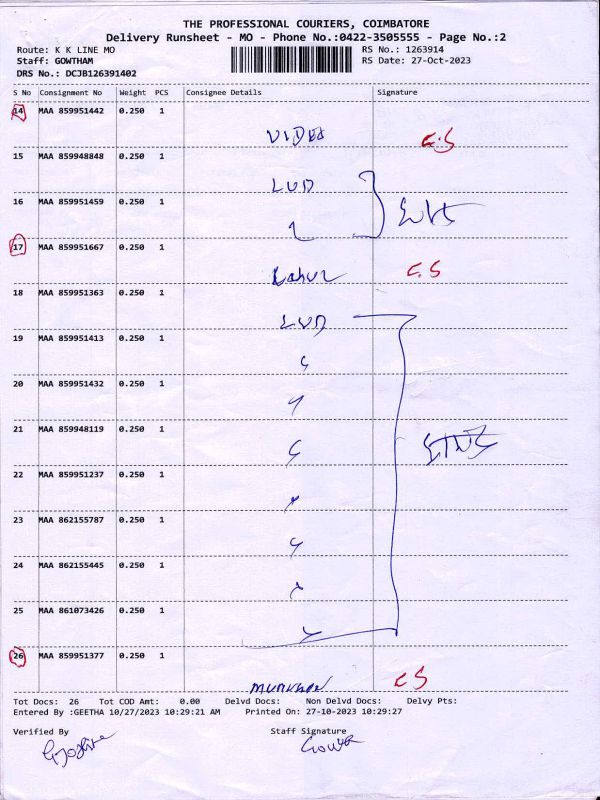 THE PROFESSIONAL COURIERS, COIMBATORE
Delivery Runsheet - MO - Phone No.:0422-3505555 - Page No.:2
Route: K K LINE MO RS No.: 1263914
Staff: GOWTHAM RS Date: 27-Oct-2023
DRS No.: DCJB126391402
S No Consignment No Weight PCS Consignee Details Signature
14 MAA 859951442 0.250 1
C.S
15 MAA 859948848 0.250 1
LUD
16 MAA 859951459 0.250 1
17 MAA 859951667 0.250 1
C.S
18 MAA 859951363 0.250 1
LUD
19 MAA 859951413 0.250 1
20 MAA 859951432 0.250 1
21 MAA 859948119 0.250 1
22 MAA 859951237 0.250 1
23 MAA 862155787 0.250 1
24 MAA 862155445 0.250 1
25 MAA 861073426 0.250 1
26 MAA 859951377 0.250 1
CS
Tot Docs: 26 Tot COD Amt: 0.00 Delvd Docs: Non Delvd Docs: Delvy Pts:
Entered By :GEETHA 10/27/2023 10:29:21 AM Printed On: 27-10-2023 10:29:27
Verified By Staff Signature